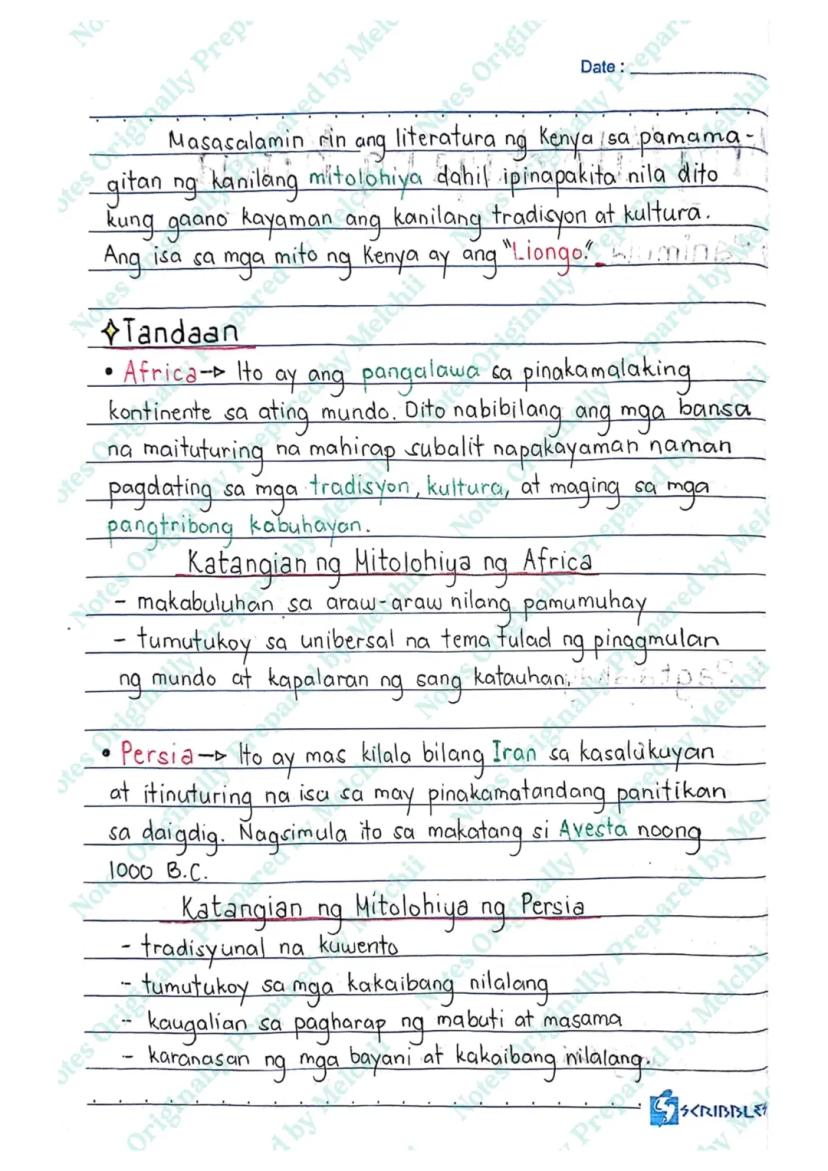 Date :
Masasalamin rin ang literatura ng Kenya sa pamama-
gitan ng kanilang mitolohiya dahil ipinapakita nila dito
kung gaano kayaman ang kanilang tradisyon at kultura.
Ang isa sa mga mito ng Kenya ay ang "Liongo."
Tandaan
• Africa → Ito ay ang pangalawa sa pinakamalaking
kontinente sa ating mundo. Dito nabibilang ang mga bansa
na maituturing na mahirap subalit napakayaman naman
pagdating sa mga tradisyon, kultura, at maging sa mga
pangtribong kabuhayan.
Katangian ng Mitolohiya ng Africa
- makabuluhan sa araw-araw nilang pamumuhay
- tumutukoy sa unibersal na tema tulad ng pinagmulan
ng mundo at kapalaran ng sang katauhan.
• Persia → Ito ay mas kilala bilang Iran sa kasalukuyan
at itinuturing na isa sa may pinakamatandang panitikan
sa daigdig. Nagsimula ito sa makatang si Avesta noong
1000 B.C.
Katangian ng Mitolohiya ng Persia
- tradisyunal na kuwento
- tumutukoy sa mga kakaibang nilalang
- kaugalian sa pagharap ng mabuti at masama
- karanasan ng mga bayani at kakaibang nilalang.
SCRIBBLES
Notes Originally Prepared by Melchii